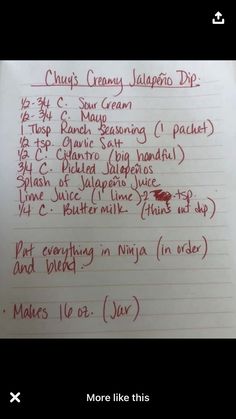 Chuy's Creamy Jalapeño Dip.
1/2-3/4 C. Sour Cream
1/2-3/4 C. Mayo
1 Tbsp Ranch Seasoning (1 packet)
1/2 tsp. Garlic Salt
1/2 C. Cilantro (big handful)
3/4 C. Pickled Jalapeños
Splash of Jalapeño Juice
Lime Juice (1 lime) - 2 tsp
1/4 C. Buttermilk (thins out dip)
Put everything in Ninja (in order)
and blend.
Makes 16 oz. (Jar)
More like this